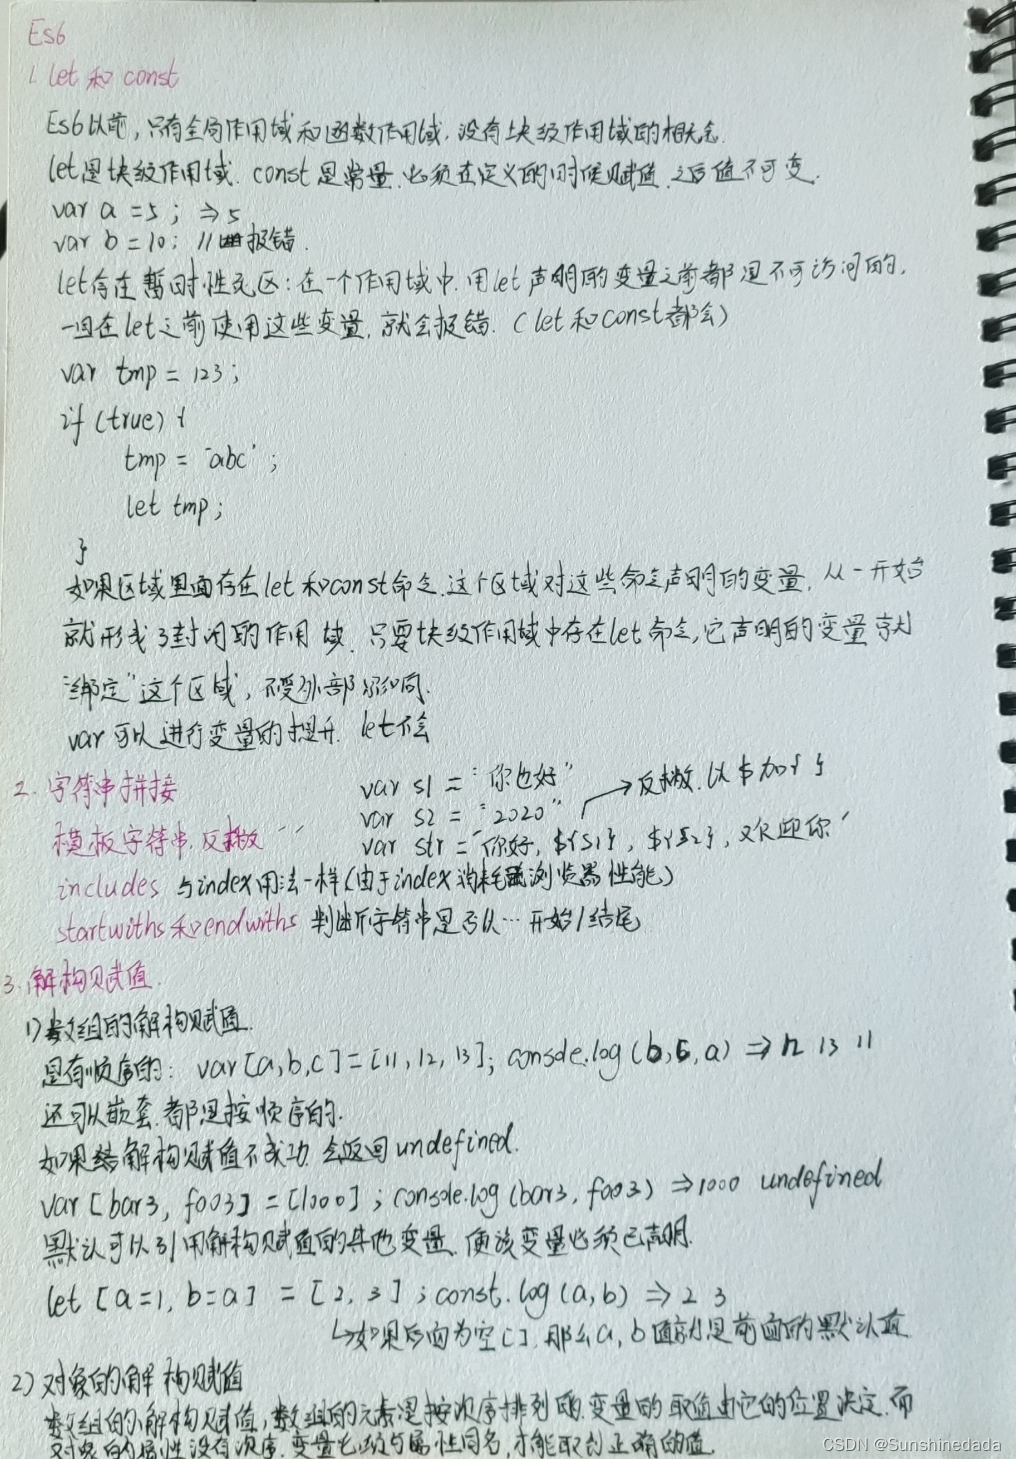 Es6
1. let 和 const
Es6以前，只有全局作用域和函数作用域，没有块级作用域的概念.
let是块级作用域. const是常量.必须在定义的时候赋值.之后值不可变.
var a = 5 ; ⇒ 5
var b = 10; // 报错.
let存在暂时性死区：在一个作用域中.用let声明的变量之前都是不可访问的.
一旦在let之前使用这些变量.就会报错.（let和const都会）
var tmp = 123;
if (true) {
tmp = "abc" ;
let tmp;
}
如果区域里面存在let和const命令.这个区域对这些命令声明的变量.从一开始
就形成了封闭的作用域. 只要块级作用域中存在let命令,它声明的变量就
"绑定"这个区域, 不受外部影响.
var可以进行变量的提升. let不会
2. 字符串拼接
模板字符串.反撇 ` `
var s1 = "你也好"
var s2 = "2020" → 反撇.以$加{ }
var str = `你好, ${s1}, ${s2}, 欢迎你`
includes 与index用法一样(由于index消耗浏览器性能)
startwiths和endwiths 判断字符串是否以…开始/结尾
3. 解构赋值.
1) 数组的解构赋值.
是有顺序的: var [a,b,c] = [11,12,13]; console.log (b,c,a) ⇒ 12 13 11
还可以嵌套.都是按顺序的.
如果解构赋值不成功.会返回undefined.
var [bar3, foo3] = [1000] ; console.log (bar3, foo3) ⇒ 1000 undefined
默认可以引用解构赋值的其他变量.但该变量必须已声明.
let [a=1, b=a] = [2, 3] ; const.log (a,b) ⇒ 2 3
↳如果后面为空[].那么a, b值就是前面的默认值
2) 对象的解构赋值
数组的解构赋值,数组的元素是按次序排列的.变量的取值由它的位置决定.而
对象的属性没有次序.变量必须与属性同名,才能取到正确的值.
CSDN @Sunshinedada